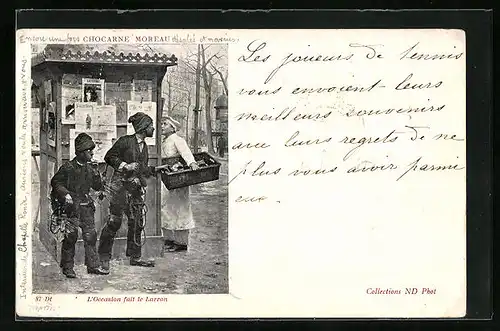 Encore une fois
CHOCARNE MOREAU
Les joueurs de tennis
vous envoient leurs
meilleurs souvenirs
avec leurs regrets de ne
plus vous avoir parmi
eux.
L'Occasion fait le Larron
Collections ND Phot